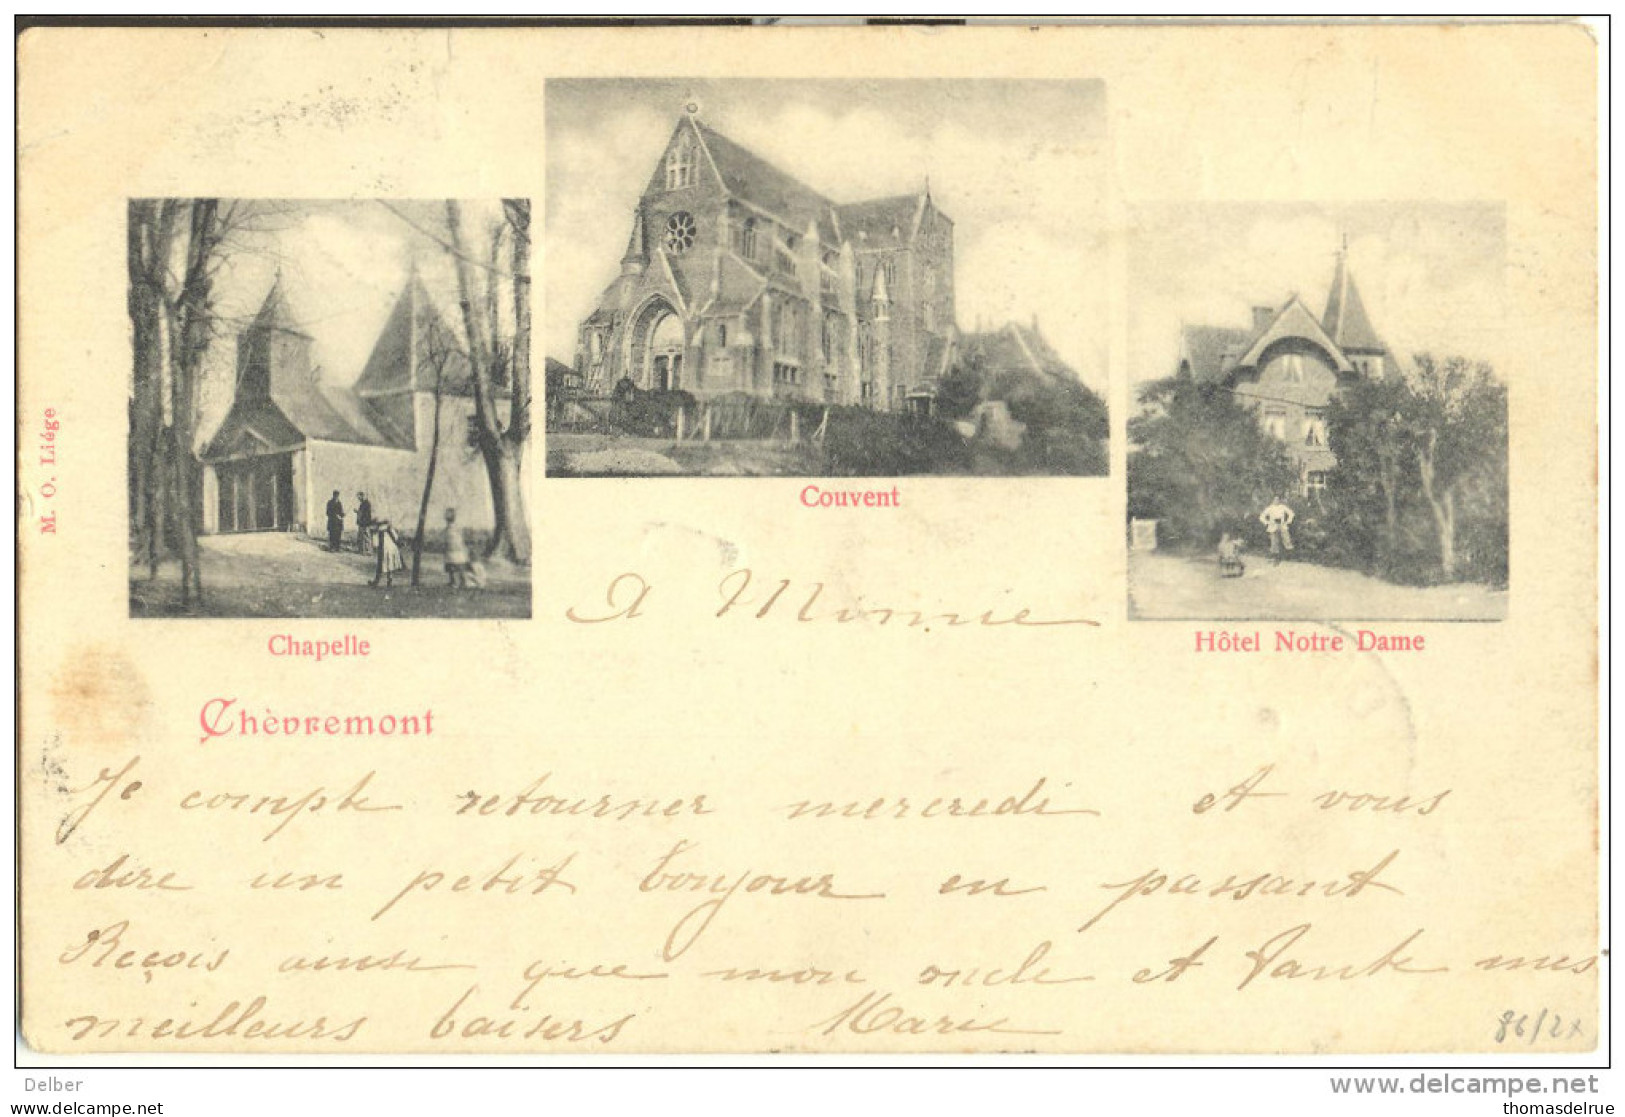 M. O. Liége
Couvent
Chapelle
Hôtel Notre Dame
A Mimie
Chèvremont
Je compte retourner mercredi et vous
dire un petit bonjour en passant
Reçois ainsi que mon oncle et Tante mes
meilleurs baisers Marie
86/2x
Delber
www.delcampe.net
delcampe.net
thomasdelrue